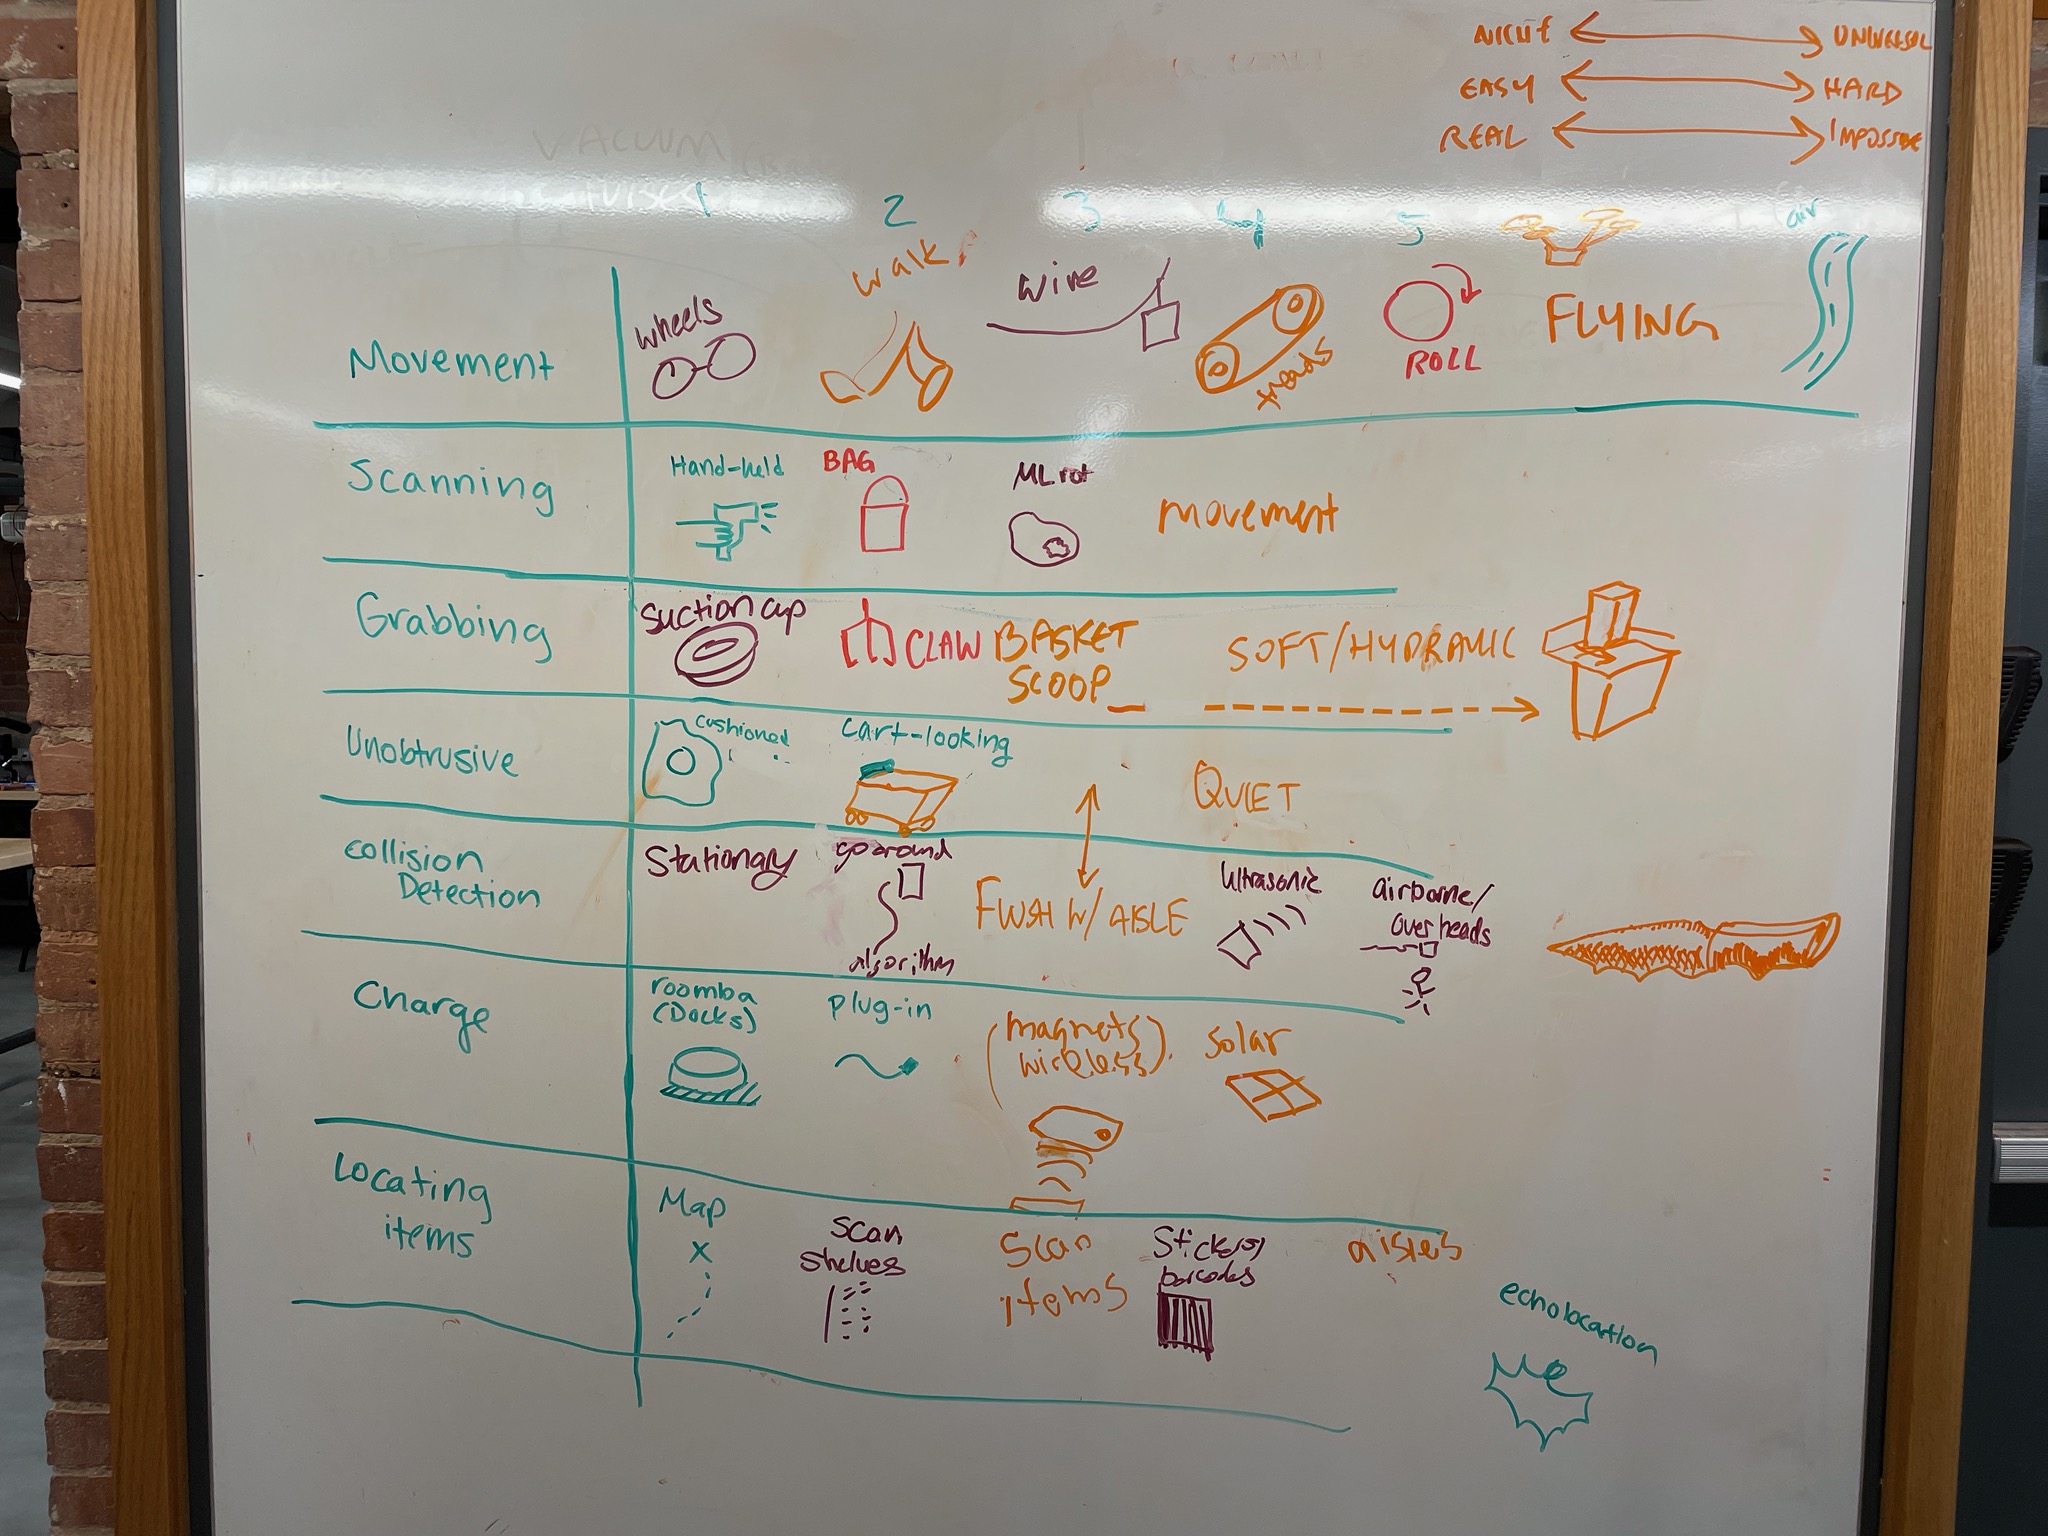 UNIVERSAL
EASY HARD
REAL
VACUUM
1 2 3 4 5 air
Movement wheels walk wire treads ROLL FLYING
Scanning Hand-held BAG movement
Grabbing suction cup CLAW BASKET SCOOP SOFT/HYDRAULIC
Unobtrusive cushioned cart-looking QUIET
Collision Detection Stationary go around algorithm FLUSH W/ AISLE Ultrasonic airborne/ over heads
Charge roomba (Docks) plug-in (magnets wireless) solar
Locating items Map X Scan Shelves Scan items Stick(s) barcodes aisles
echolocation